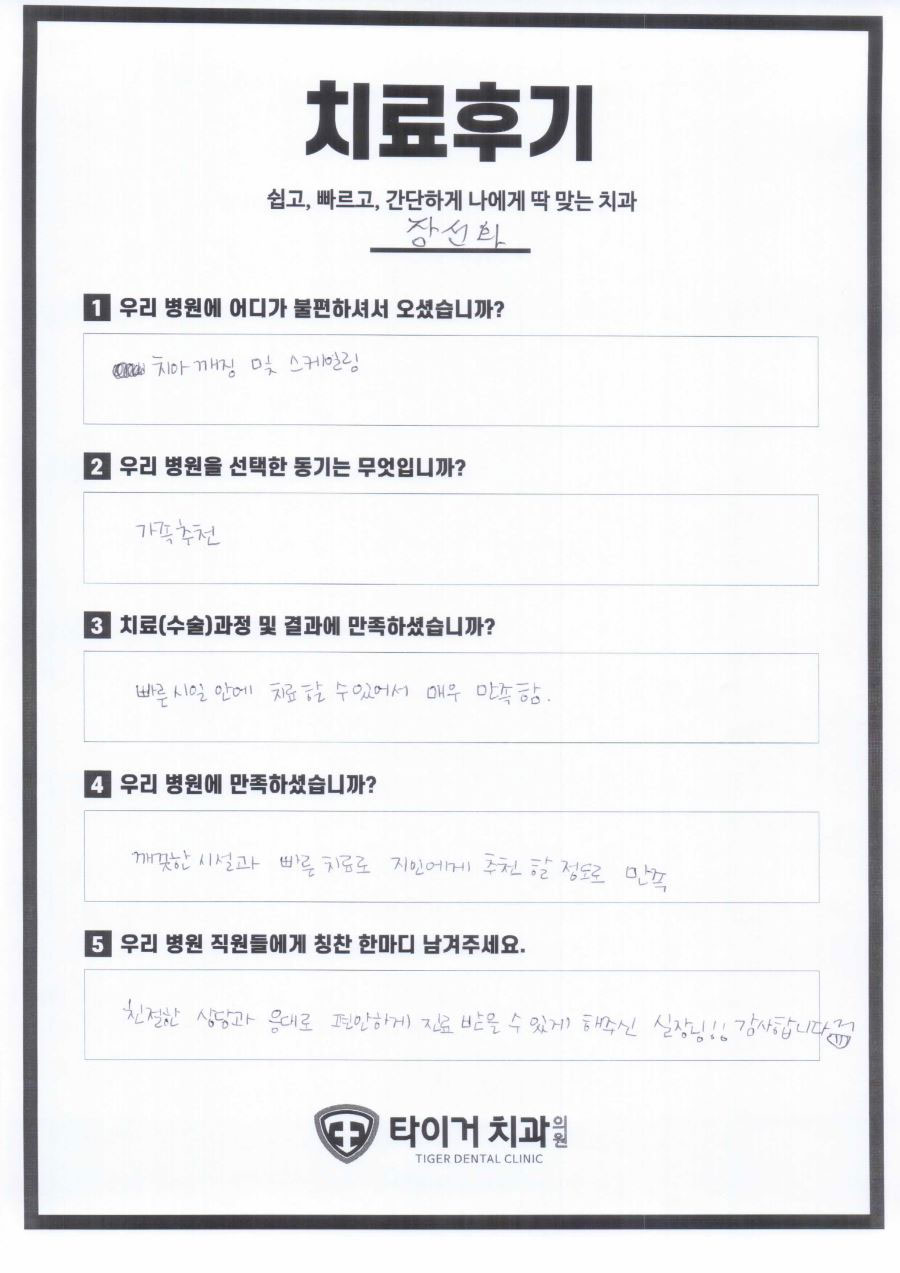 치료후기
쉽고, 빠르고, 간단하게 나에게 딱 맞는 치과
장선화
1 우리 병원에 어디가 불편하셔서 오셨습니까?
치아 깨짐 및 스케일링
2 우리 병원을 선택한 동기는 무엇입니까?
가족추천
3 치료(수술)과정 및 결과에 만족하셨습니까?
빠른 시일 안에 치료 할 수 있어서 매우 만족함.
4 우리 병원에 만족하셨습니까?
깨끗한 시설과 빠른 치료로 지인에게 추천 할 정도로 만족
5 우리 병원 직원들에게 칭찬 한마디 남겨주세요.
친절한 상담과 응대로 편안하게 진료 받을 수 있게 해주신 실장님!! 감사합니다
타이거 치과의원
TIGER DENTAL CLINIC